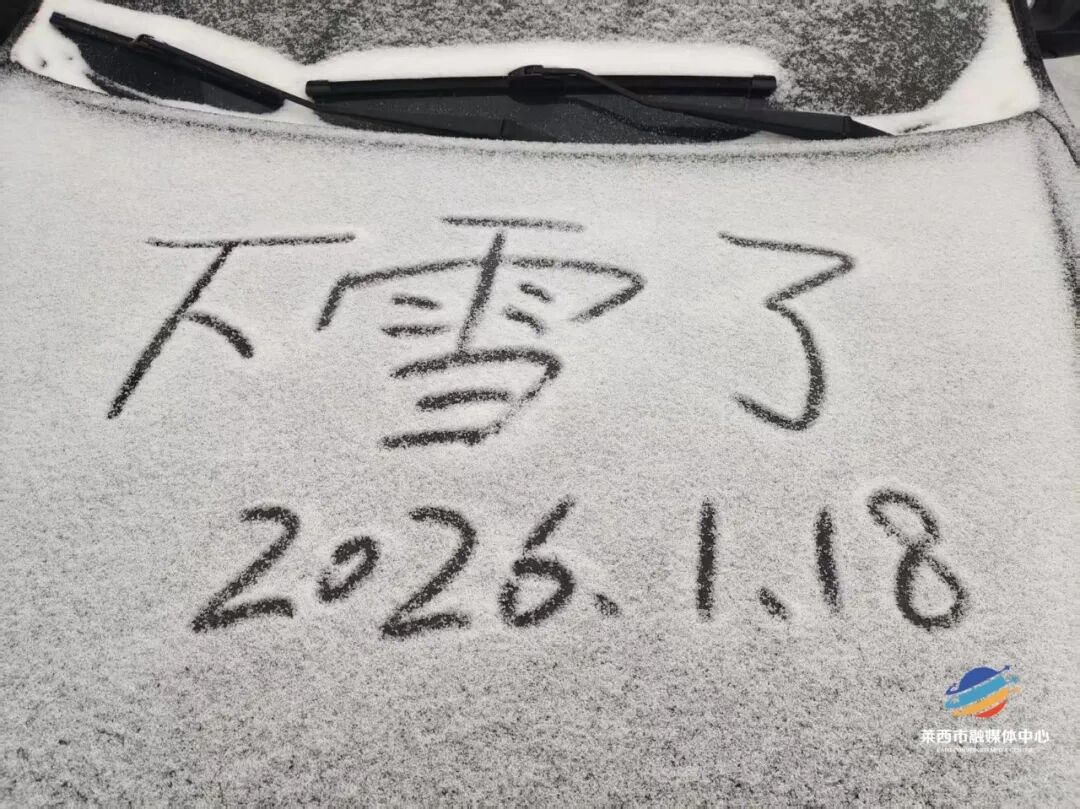 下雪了
2026.1.18
莱西市融媒体中心